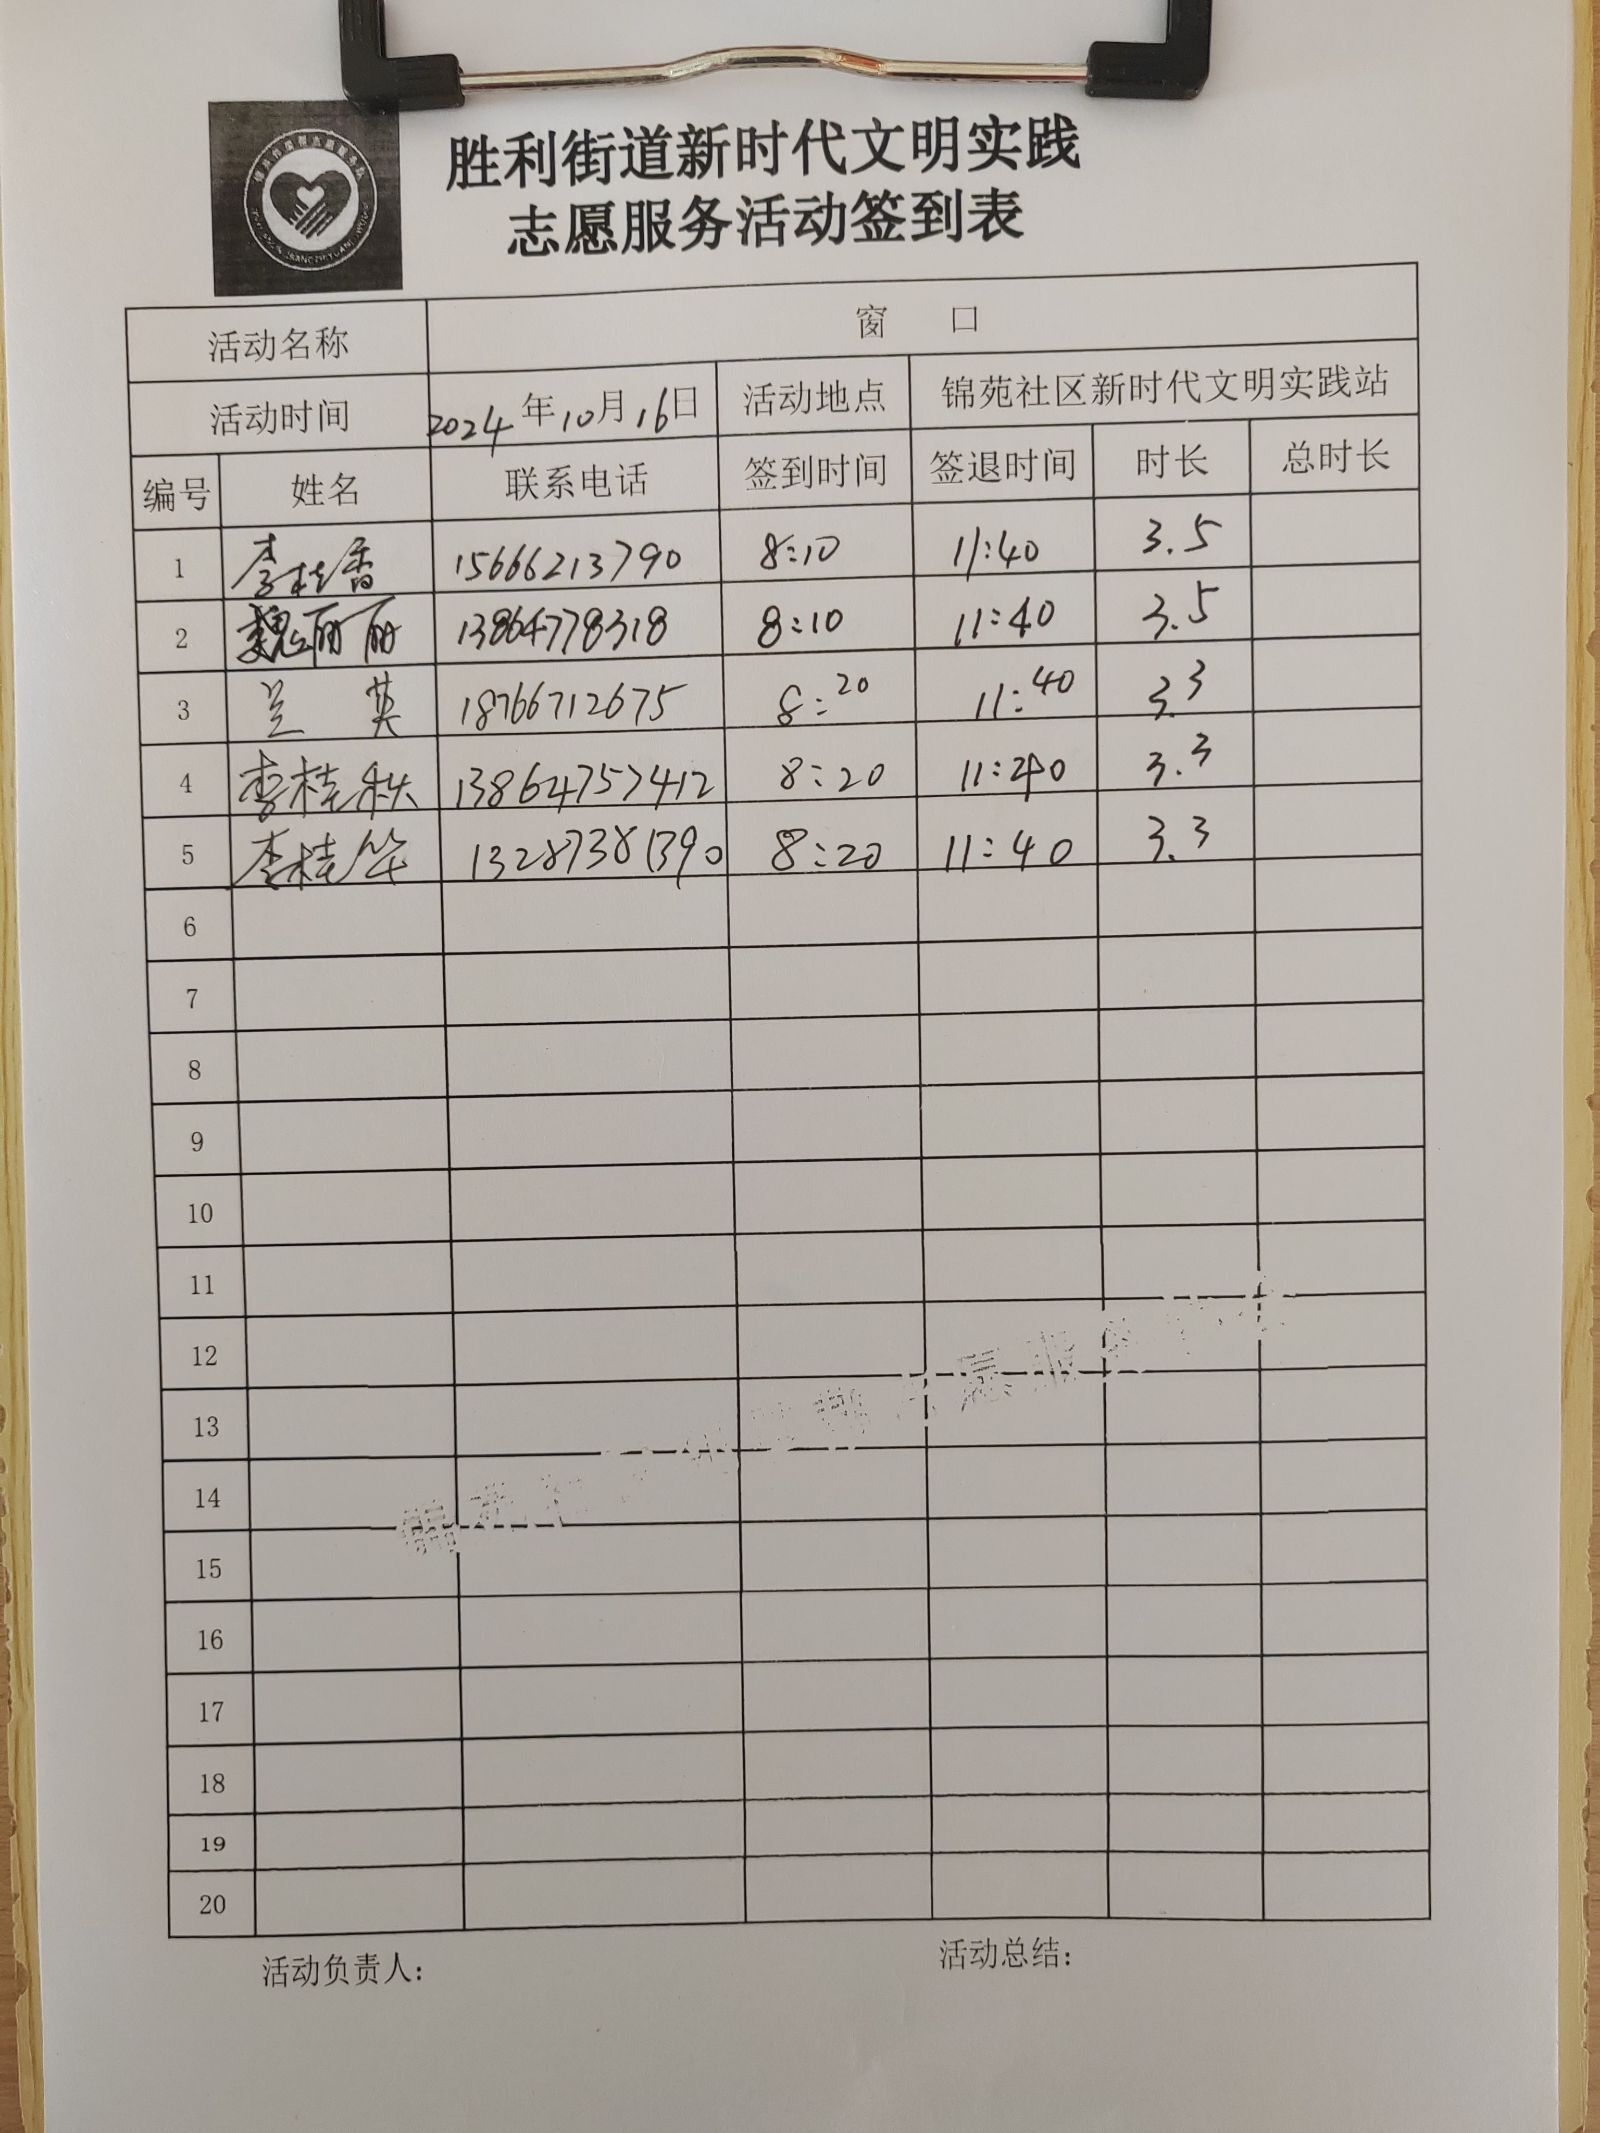 胜利街道新时代文明实践
志愿服务活动签到表
活动名称 窗 口
活动时间 2024年10月16日 活动地点 锦苑社区新时代文明实践站
编号 姓名 联系电话 签到时间 签退时间 时长 总时长
1 李桂香 15666213790 8:10 11:40 3.5
2 魏丽丽 13864778318 8:10 11:40 3.5
3 兰 英 18766712675 8:20 11:40 3.3
4 李桂秋 13864757412 8:20 11:40 3.3
5 李桂华 13287381390 8:20 11:40 3.3
6
7
8
9
10
11
12
13
14
15
16
17
18
19
20
活动负责人: 活动总结: